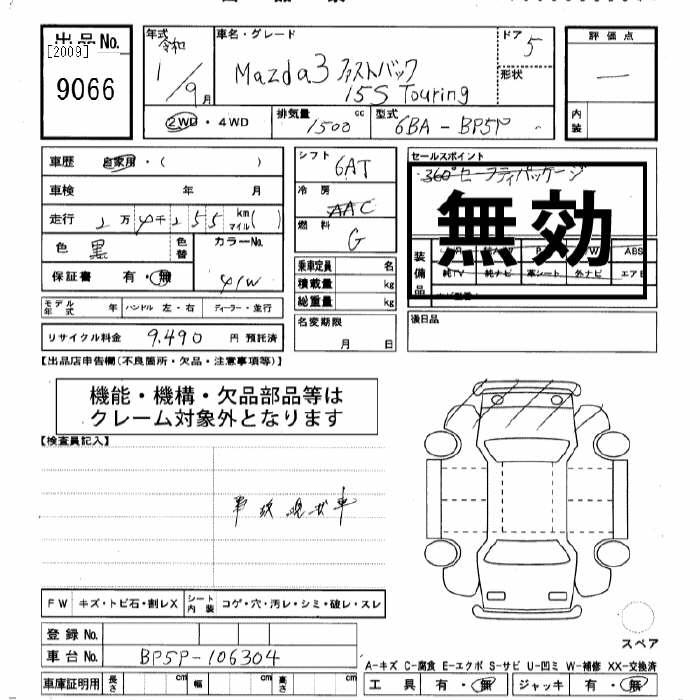 出品No.
[2009]
9066
年式 令和
1/9月
車名・グレード
Mazda3 ファストバック
15S Touring
ドア 5
形状
評価点
—
内装
2WD・4WD
排気量 1500 cc
型式 6BA-BP5P
車歴 自家用・( )
車検 年 月
走行 2万4千255 km マイル( )
色 黒 色替
カラーNo. 41W
保証書 有・無
モデル年式 年 ハンドル 左・右 ディーラー・並行
リサイクル料金 9,490 円 預託済
シフト 6AT
冷房 AAC
燃料 G
乗車定員 名
積載量 kg
総重量 kg
名変期限
月 日
セールスポイント
360°セーフティパッケージ
無効
装備品
ABS
純TV 純ナビ 革シート 外ナビ エアB
後日品
【出品店申告欄(不良箇所・欠品・注意事項等)】
機能・機構・欠品部品等は
クレーム対象外となります
【検査員記入】
事故現状車
FW キズ・トビ石・割レX シート内装 コゲ・穴・汚レ・シミ・破レ・スレ
登録No.
車台No. BP5P-106304
車庫証明用 長さ cm 幅 cm 高さ cm
スペア
A-キズ C-腐食 E-エクボ S-サビ U-凹ミ W-補修 XX-交換済
工具 有・無 ジャッキ 有・無